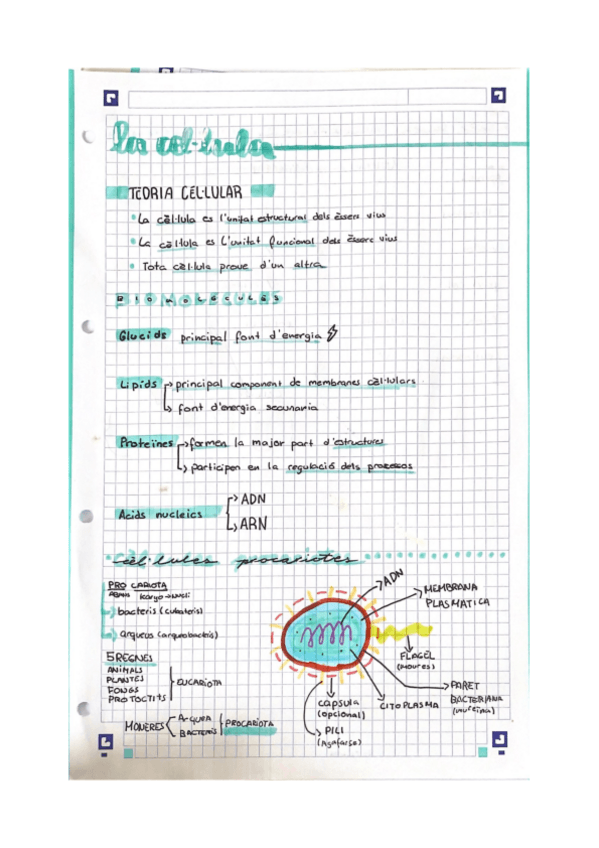 la cèl·lula
TEORIA CEL·LULAR
• La cèl·lula es l'unitat estructural dels èssers vius
• La cèl·lula es l'unitat funcional dels èssers vius
• Tota cèl·lula prove d'un altra
BIOMOLÈCULES
Glucids principal font d'energia
Lipids → principal component de membranes cèl·lulars
↳ font d'energia secunaria
Proteïnes → formen la major part d'estructures
↳ participen en la regulació dels processos
Acids nucleics → ADN
↳ ARN
cèl·lules procariotes
PRO CARIOTA
Abans Karyo → nucli
→ bacteris (eubacteris)
→ arqueus (arqueobacteris)
5 REGNES
ANIMALS
PLANTES
FONGS
PROTOCTITS
EUCARIOTA
MONERES
ARQUEA
BACTERIS
PROCARIOTA
ADN
MEMBRANA
PLASMATICA
FLAGEL
(moures)
PARET
BACTERIANA
(mureina)
CITOPLASMA
CAPSULA
(opcional)
PILI
(Agafarse)